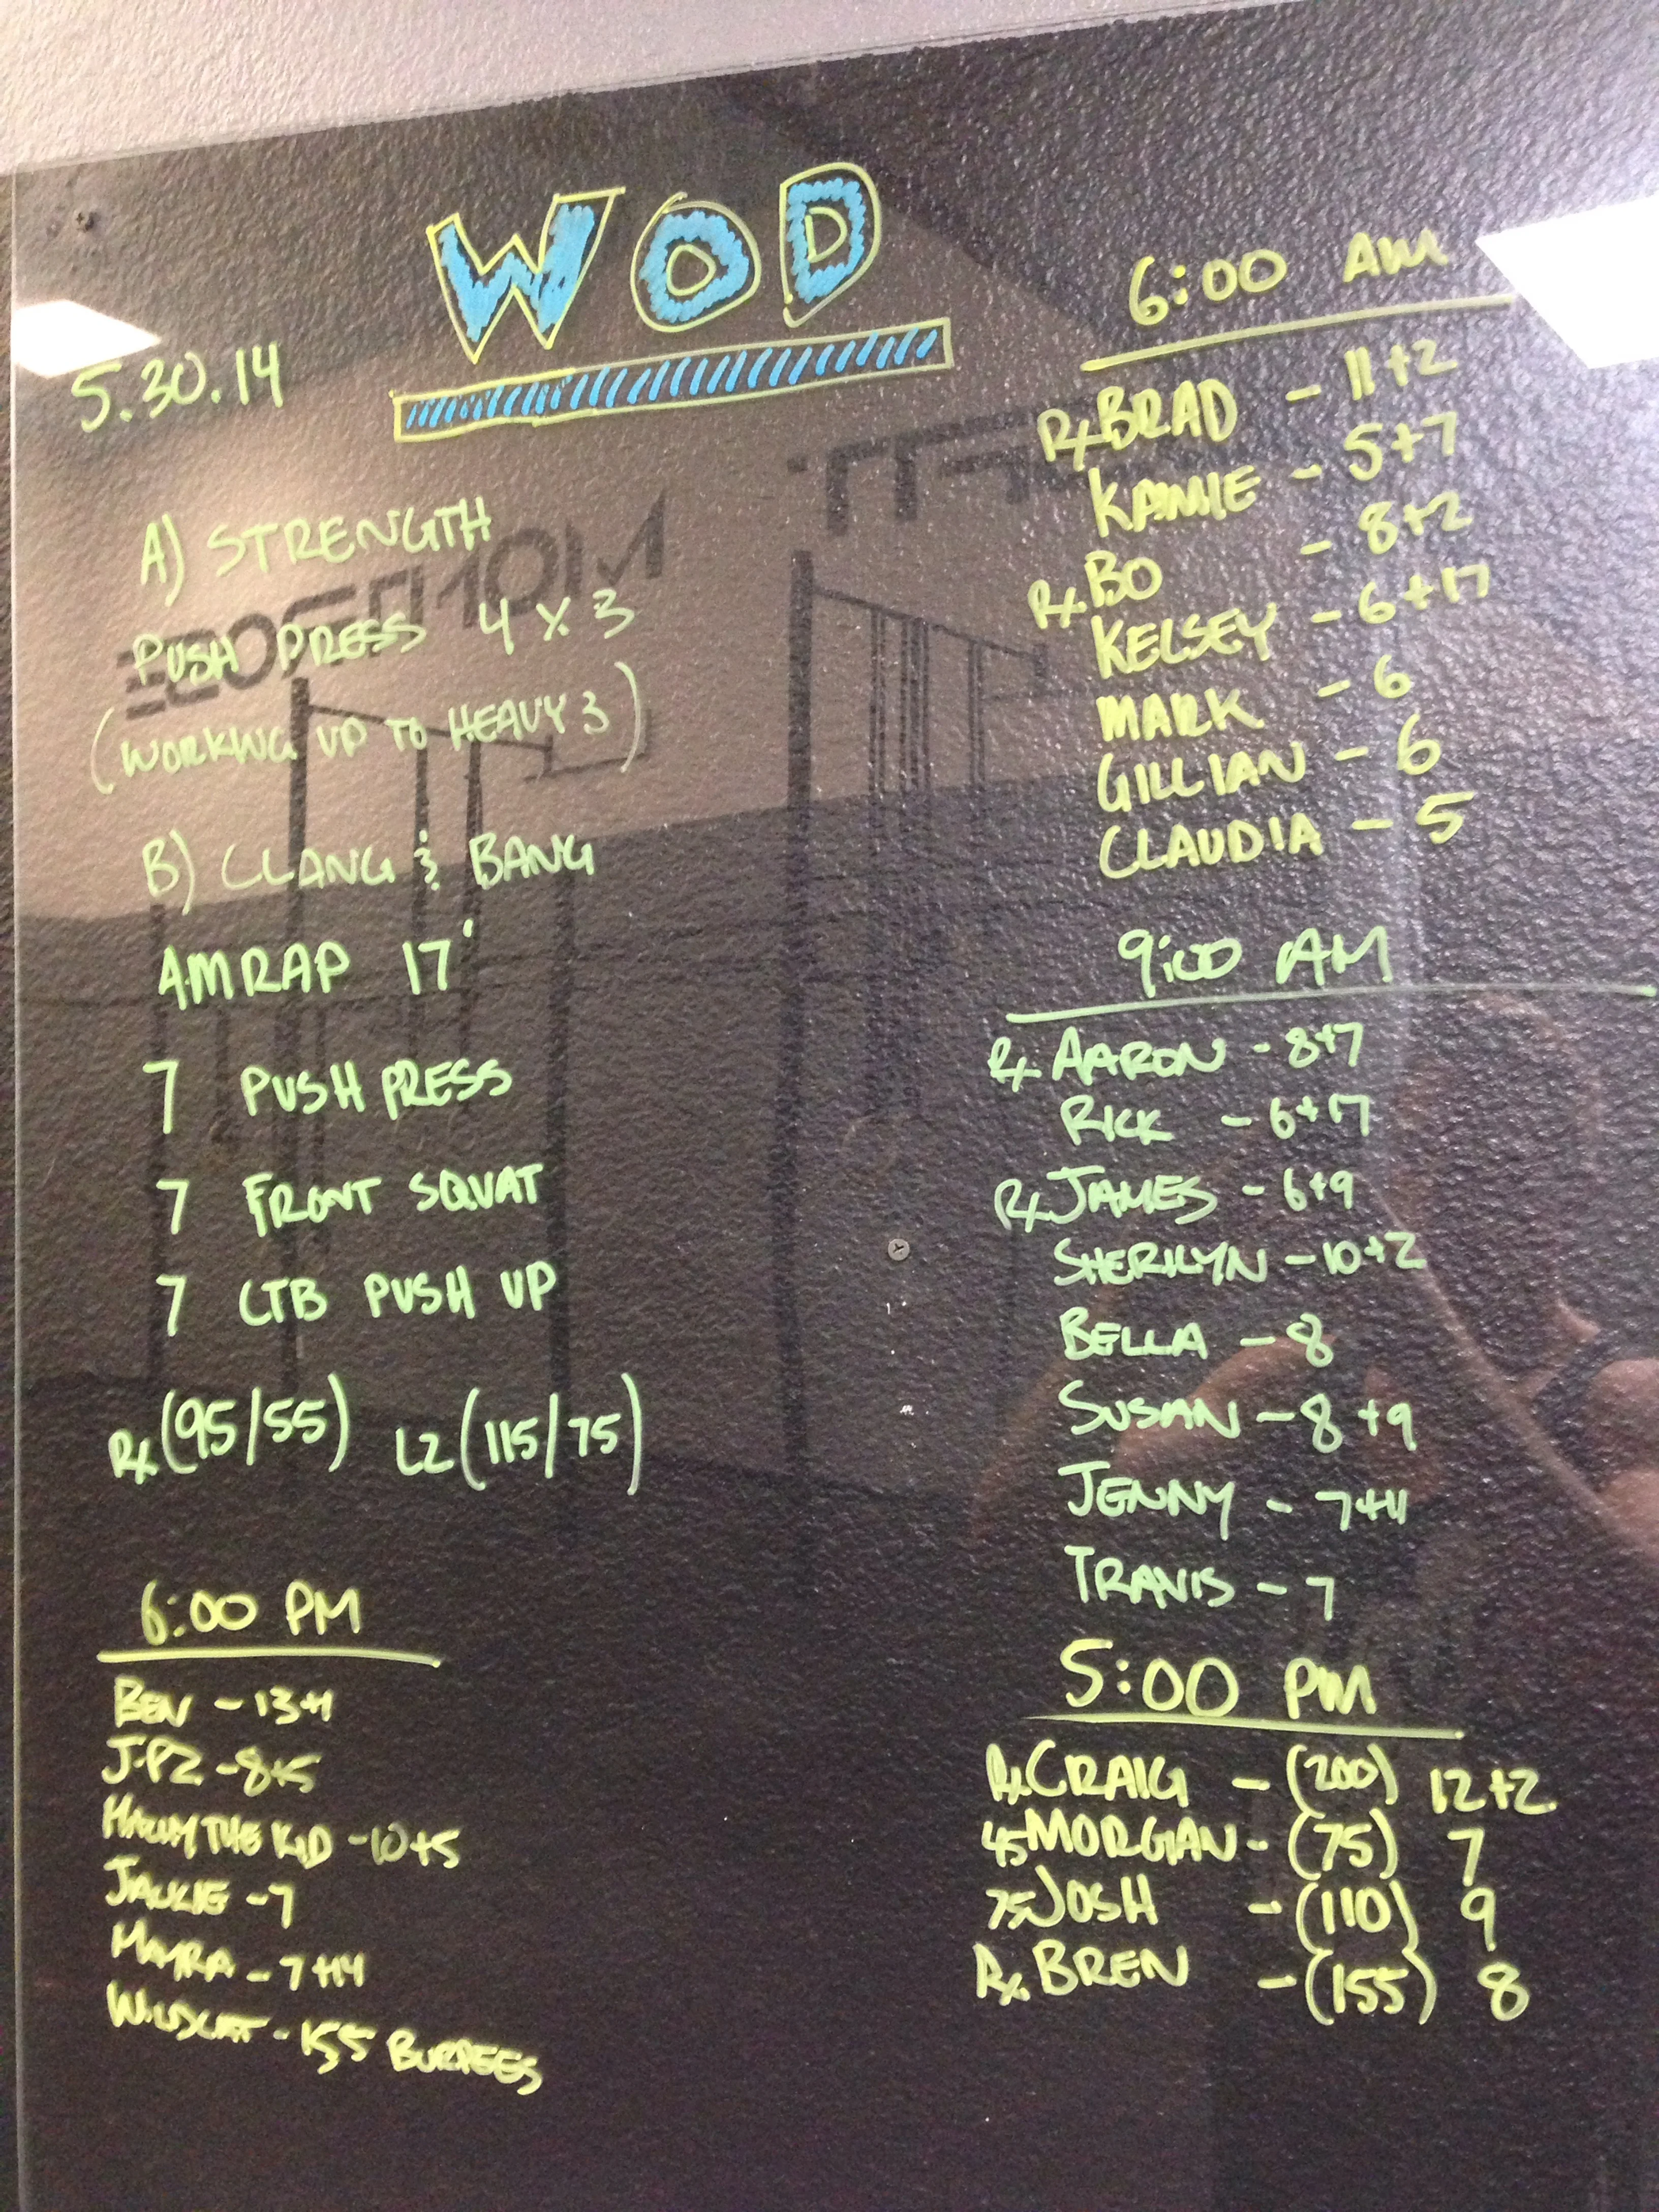 WOD
5.30.14
A) STRENGTH
PUSH PRESS 4 X 3
(WORKING UP TO HEAVY 3)
B) CLANG & BANG
AMRAP 17'
7 PUSH PRESS
7 FRONT SQUAT
7 CTB PUSH UP
Rx (95/55) L2 (115/75)
6:00 PM
BEN - 13+1
J-PZ - 8+5
THE KID - 10+5
JACKIE - 7
MAYRA - 7+14
WILDCAT - 155 BURPEES
6:00 AM
Rx BRAD - 11+2
KAMIE - 5+7
Rx BO - 8+2
KELSEY - 6+17
MARK - 6
GILLIAN - 6
CLAUDIA - 5
9:00 AM
Rx AARON - 8+7
RICK - 6+17
Rx JAMES - 6+9
SHERILYN - 10+2
BELLA - 8
SUSAN - 8+9
JENNY - 7+11
TRAVIS - 7
5:00 PM
Rx CRAIG - (200) 12+2
45 MORGAN - (75) 7
75 JOSH - (110) 9
Rx BREN - (155) 8